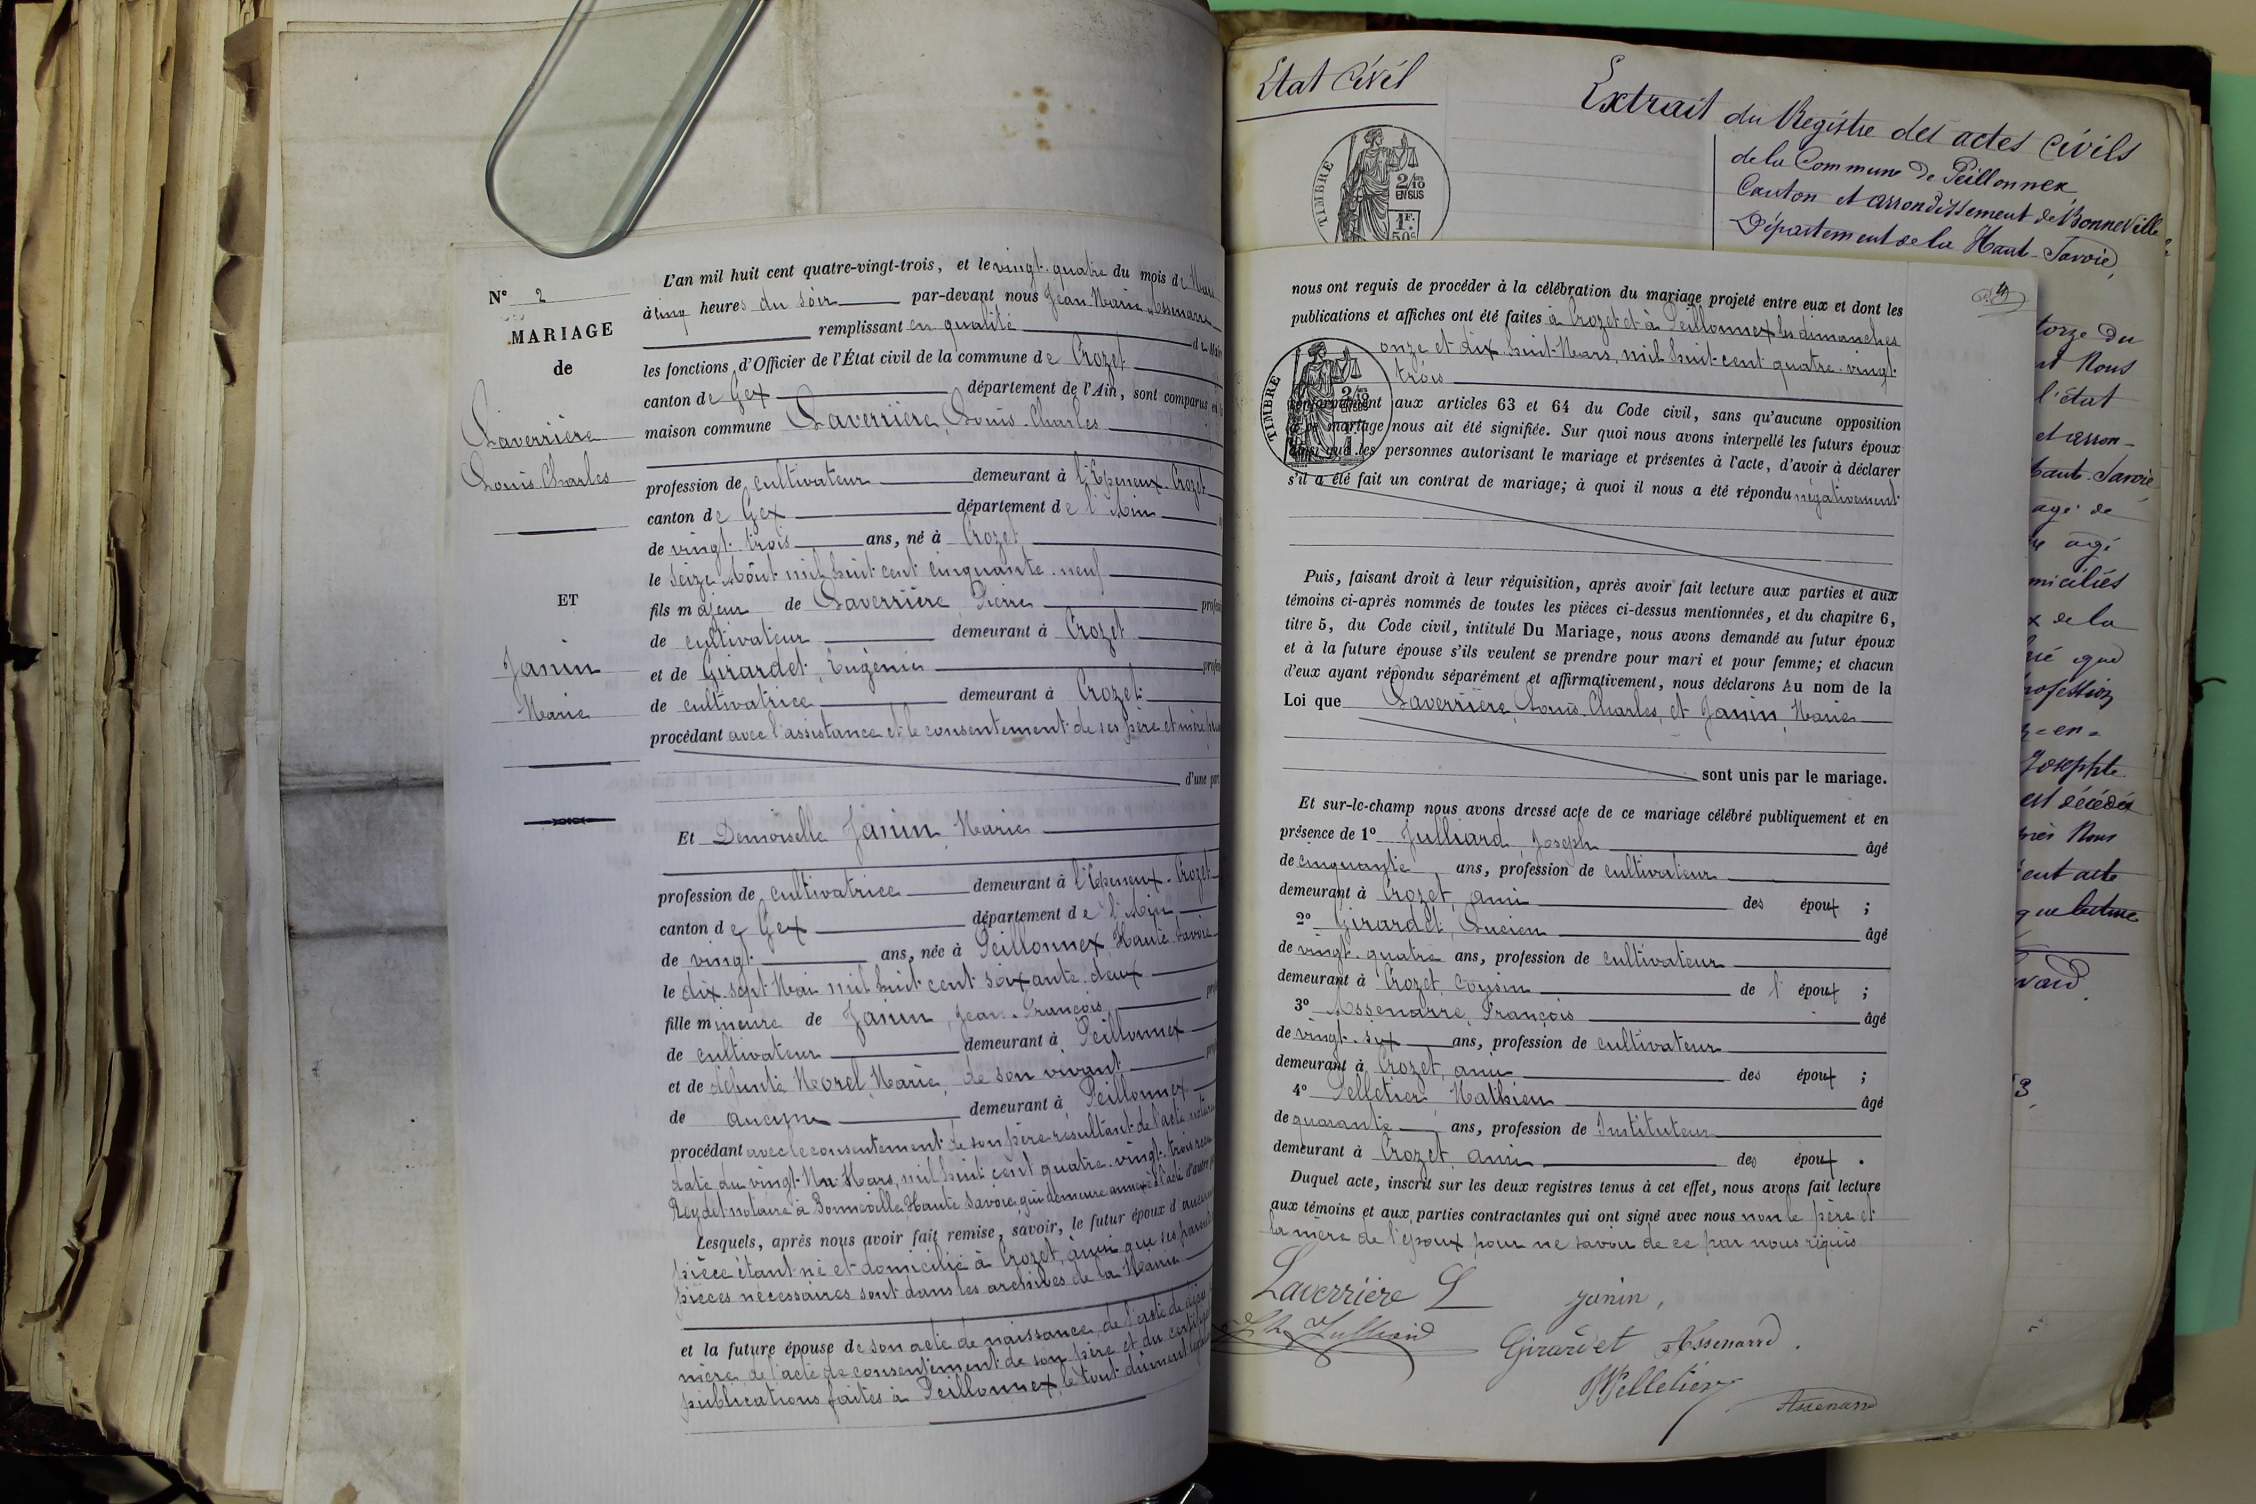 N° 2
MARIAGE
de
Laverrière
Louis Charles
ET
Janin
Marie
L'an mil huit cent quatre-vingt-trois, et le vingt-quatre du mois de Mars
à cinq heures du soir par-devant nous Jean Marie Assenarre
remplissant en qualité de Maire
les fonctions d'Officier de l'État civil de la commune de Crozet
canton de Gex département de l'Ain, sont comparus en la
maison commune Laverrière, Louis Charles
profession de cultivateur demeurant à l'Epeneux-Crozet
canton de Gex département de l'Ain
de vingt-trois ans, né à Crozet
le seize Août mil huit cent cinquante-neuf
fils majeur de Laverrière, Pierre profes
de cultivateur demeurant à Crozet
et de Girardet, Eugénie profes
de cultivatrice demeurant à Crozet
procédant avec l'assistance et le consentement de ses père et mère
d'une part
Et Demoiselle Janin, Marie
profession de cultivatrice demeurant à l'Epeneux-Crozet
canton de Gex département de l'Ain
de vingt ans, née à Peillonnex Haute-Savoie
le dix-sept Mai mil huit cent soixante-deux
fille mineure de Janin, Jean-François
de cultivateur demeurant à Peillonnex
et de défunte Morel, Marie, de son vivant
de aucune demeurant à Peillonnex
procédant avec le consentement de son père résultant de l'acte
daté du vingt-un Mars, mil huit cent quatre-vingt-trois
Reydet notaire à Bonneville, Haute Savoie, qui demeure annexé à l'acte d'autre
Lesquels, après nous avoir fait remise, savoir, le futur époux d'aucune
pièce étant né et domicilié à Crozet, ainsi que ses parents
pièces nécessaires sont dans les archives de la Mairie
et la future épouse de son acte de naissance, de l'acte de décès
mère, de l'acte de consentement de son père et du certificat
publications faites à Peillonnex, le tout dûment
Etat Civil
Extrait du Registre des actes civils
de la Commune de Peillonnex
Canton et arrondissement de Bonneville
Département de la Haute-Savoie,
TIMBRE
2/10
EN SUS
1F.
50c
4
nous ont requis de procéder à la célébration du mariage projeté entre eux et dont les
publications et affiches ont été faites à Crozet et à Peillonnex les dimanches
onze et dix-huit Mars, mil huit cent quatre-vingt-
trois
TIMBRE
conformément aux articles 63 et 64 du Code civil, sans qu'aucune opposition
à ce mariage nous ait été signifiée. Sur quoi nous avons interpellé les futurs époux
ainsi que les personnes autorisant le mariage et présentes à l'acte, d'avoir à déclarer
s'il a été fait un contrat de mariage; à quoi il nous a été répondu négativement
Puis, faisant droit à leur réquisition, après avoir fait lecture aux parties et aux
témoins ci-après nommés de toutes les pièces ci-dessus mentionnées, et du chapitre 6,
titre 5, du Code civil, intitulé Du Mariage, nous avons demandé au futur époux
et à la future épouse s'ils veulent se prendre pour mari et pour femme; et chacun
d'eux ayant répondu séparément et affirmativement, nous déclarons Au nom de la
Loi que Laverrière, Louis Charles, et Janin, Marie
sont unis par le mariage.
Et sur-le-champ nous avons dressé acte de ce mariage célébré publiquement et en
présence de 1° Julliard, Joseph âgé
de cinquante ans, profession de cultivateur
demeurant à Crozet, ami des époux ;
2° Girardet, Lucien âgé
de vingt-quatre ans, profession de cultivateur
demeurant à Crozet, cousin de l'époux ;
3° Assenarre, François âgé
de vingt-six ans, profession de cultivateur
demeurant à Crozet, ami des époux ;
4° Pelletier, Mathieu âgé
de quarante ans, profession de Instituteur
demeurant à Crozet, ami des époux .
Duquel acte, inscrit sur les deux registres tenus à cet effet, nous avons fait lecture
aux témoins et aux parties contractantes qui ont signé avec nous non le père et
la mère de l'époux pour ne savoir de ce par nous requis
Laverrière L janin,
Julliard Girardet Assenard.
Pelletier Assenard
torze du
Nous
l'état
et arron-
haute-Savoie
age de
agé
miciliés
de la
que
rofession
Josephte
est décédée
Nous
acte
que lecture